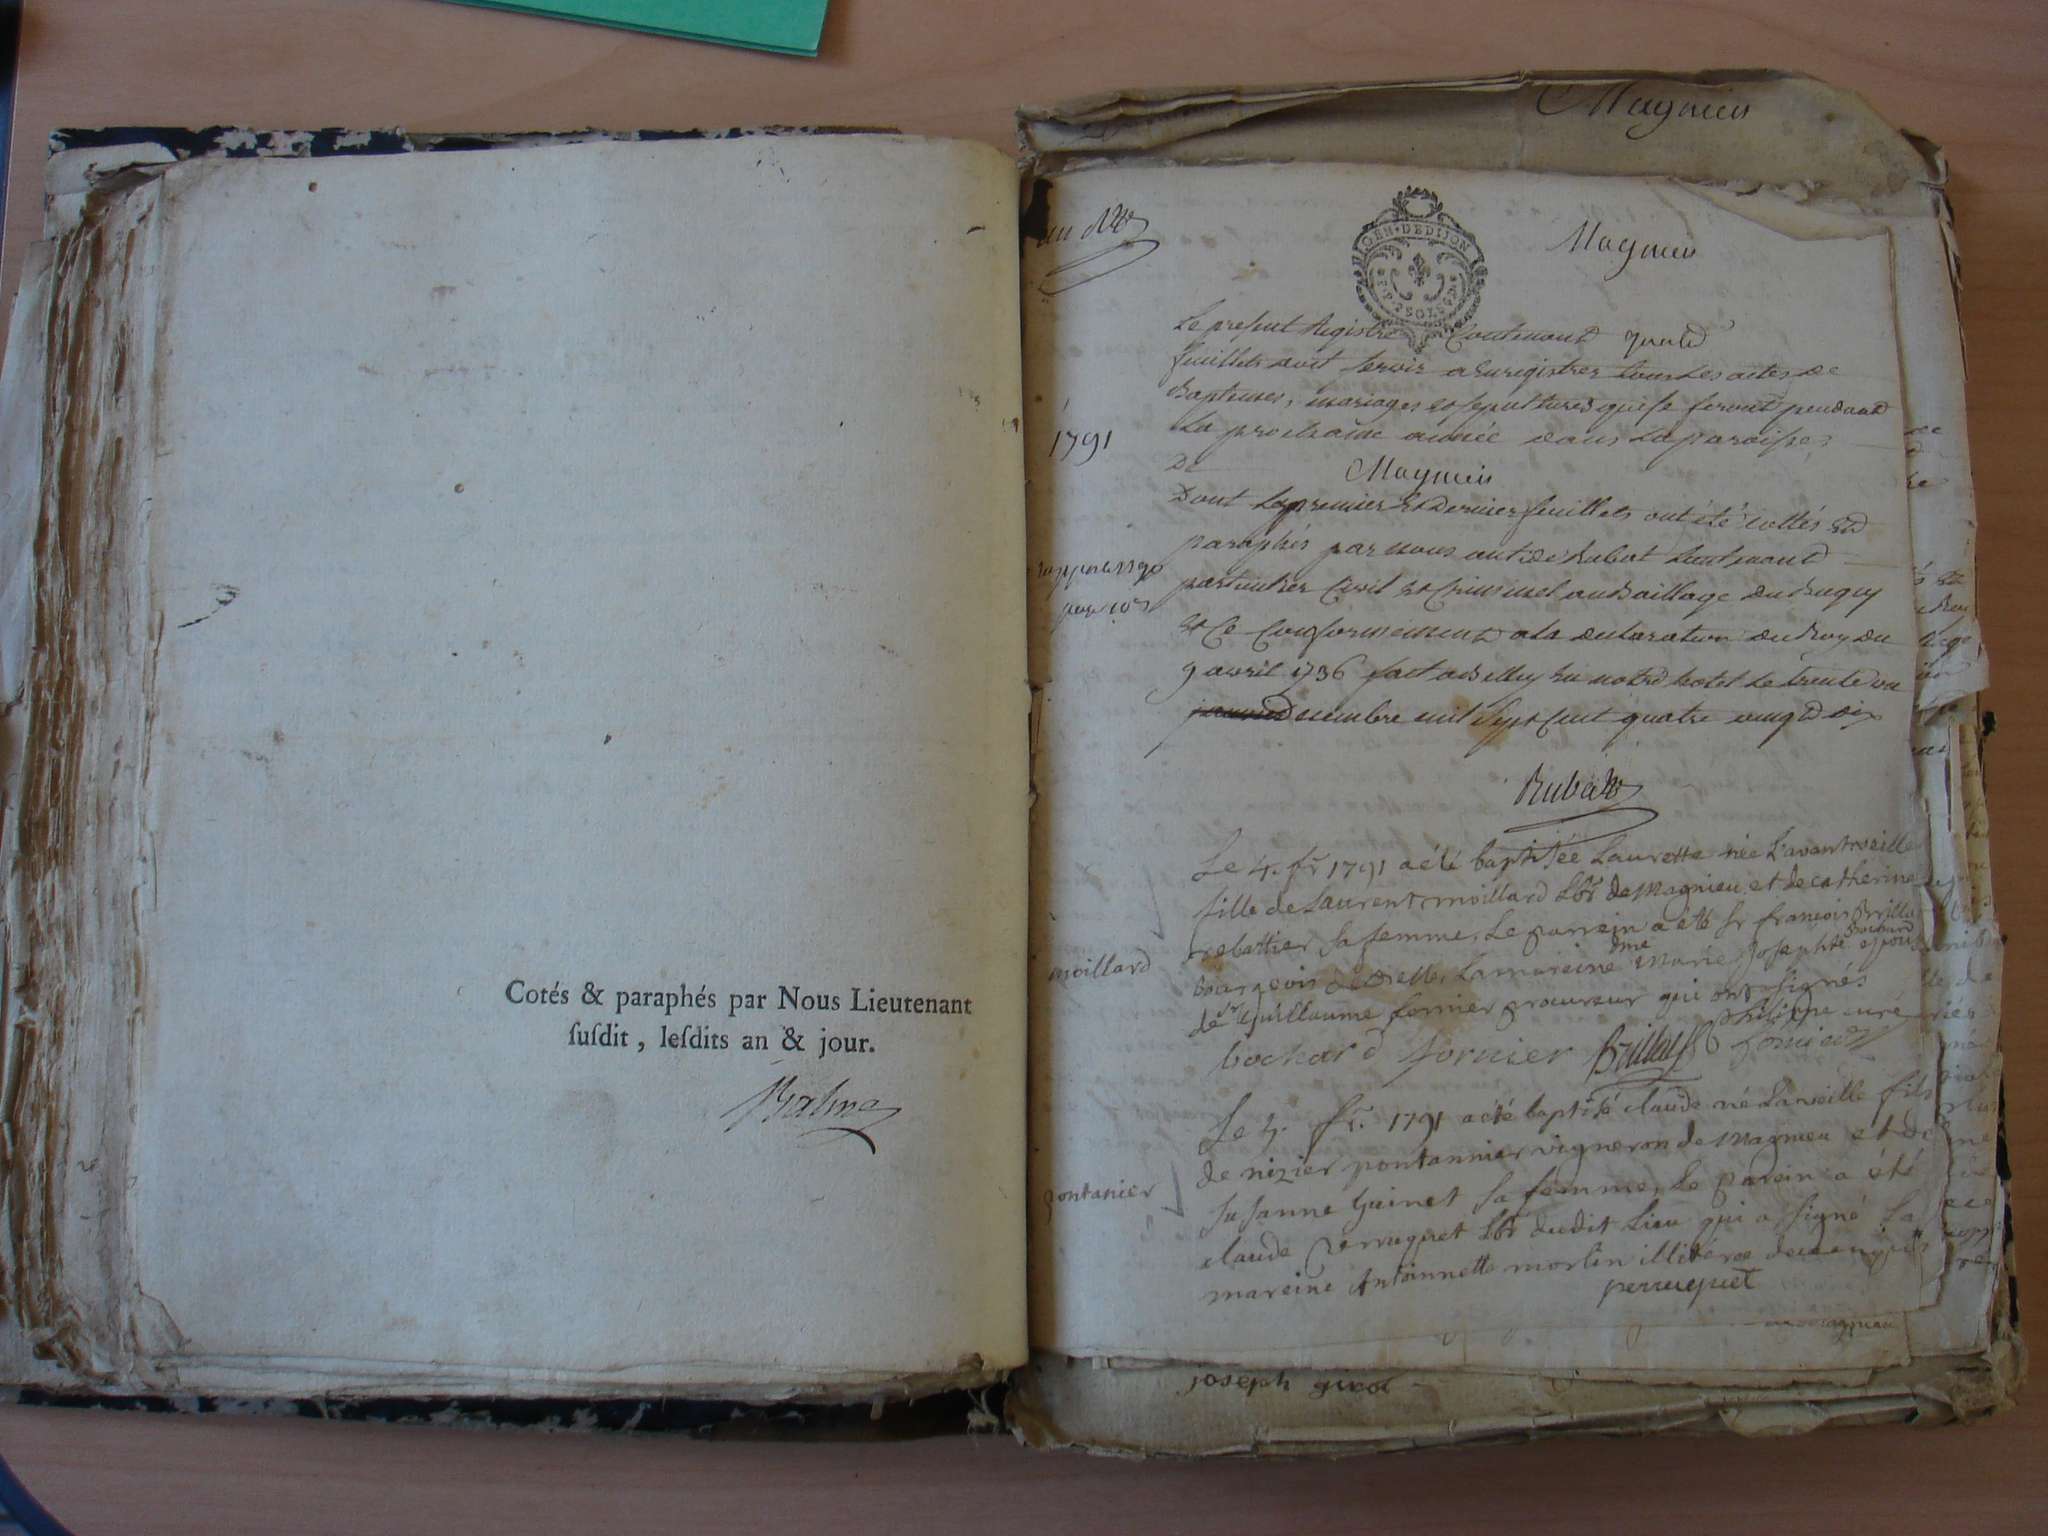 Cotés & paraphés par Nous Lieutenant
ſuſdit, leſdits an & jour.
Balme
Magnieu
Magnieu
GEN·DEDIJON
Le present Registre Contenant
feuillets doit servir a Enregistrer tous Les actes de
Baptemes, mariages et sepultures qui se feront pendant
La prochaine année dans La paroisse
De Magnieu
Dont Le premier Et Dernier feuillets ont été cottés Et
paraphés par nous Rubat Lieutenant
particulier Civil Et Criminel au Baillage du Bugey
Et Ce Conformement a la declaration du Roy du
9 avril 1736 fait a Belley En notre hotel Le trente un
decembre mil Sept Cent quatre vingt dix
Rubat
1791
moillard
Le 4. fr 1791 a été baptisée Laurette née L'avantveille
fille de Laurent moillard Lbr de Magnieu et de catherine
rebattier sa femme, Le parrein a été sr françois Brillat
bourgeois de Belley, La mareine dme marie Josephte Bochard epouse
de sr Guillaume fornier procureur qui ont signés
philippe curé
bochard fornier Brillat fornier
pontanier
Le 4. fr. 1791 a été baptisé claude né La veille fils
de nizier pontannier vigneron de magnieu et de
susanne Guinet sa femme, Le parein a été
claude perruquet Lbr dudit Lieu qui a signé La
mareine Antoinnette morlin illitérée de
perruquet
magnieu
joseph